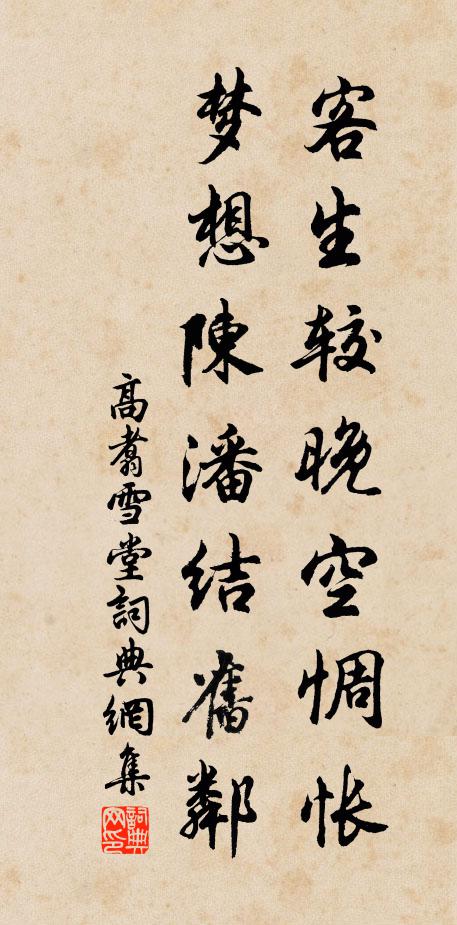 客生较晚空惆怅
梦想陳潘结舊鄰
高翥雪堂詞典網集
詞典网印